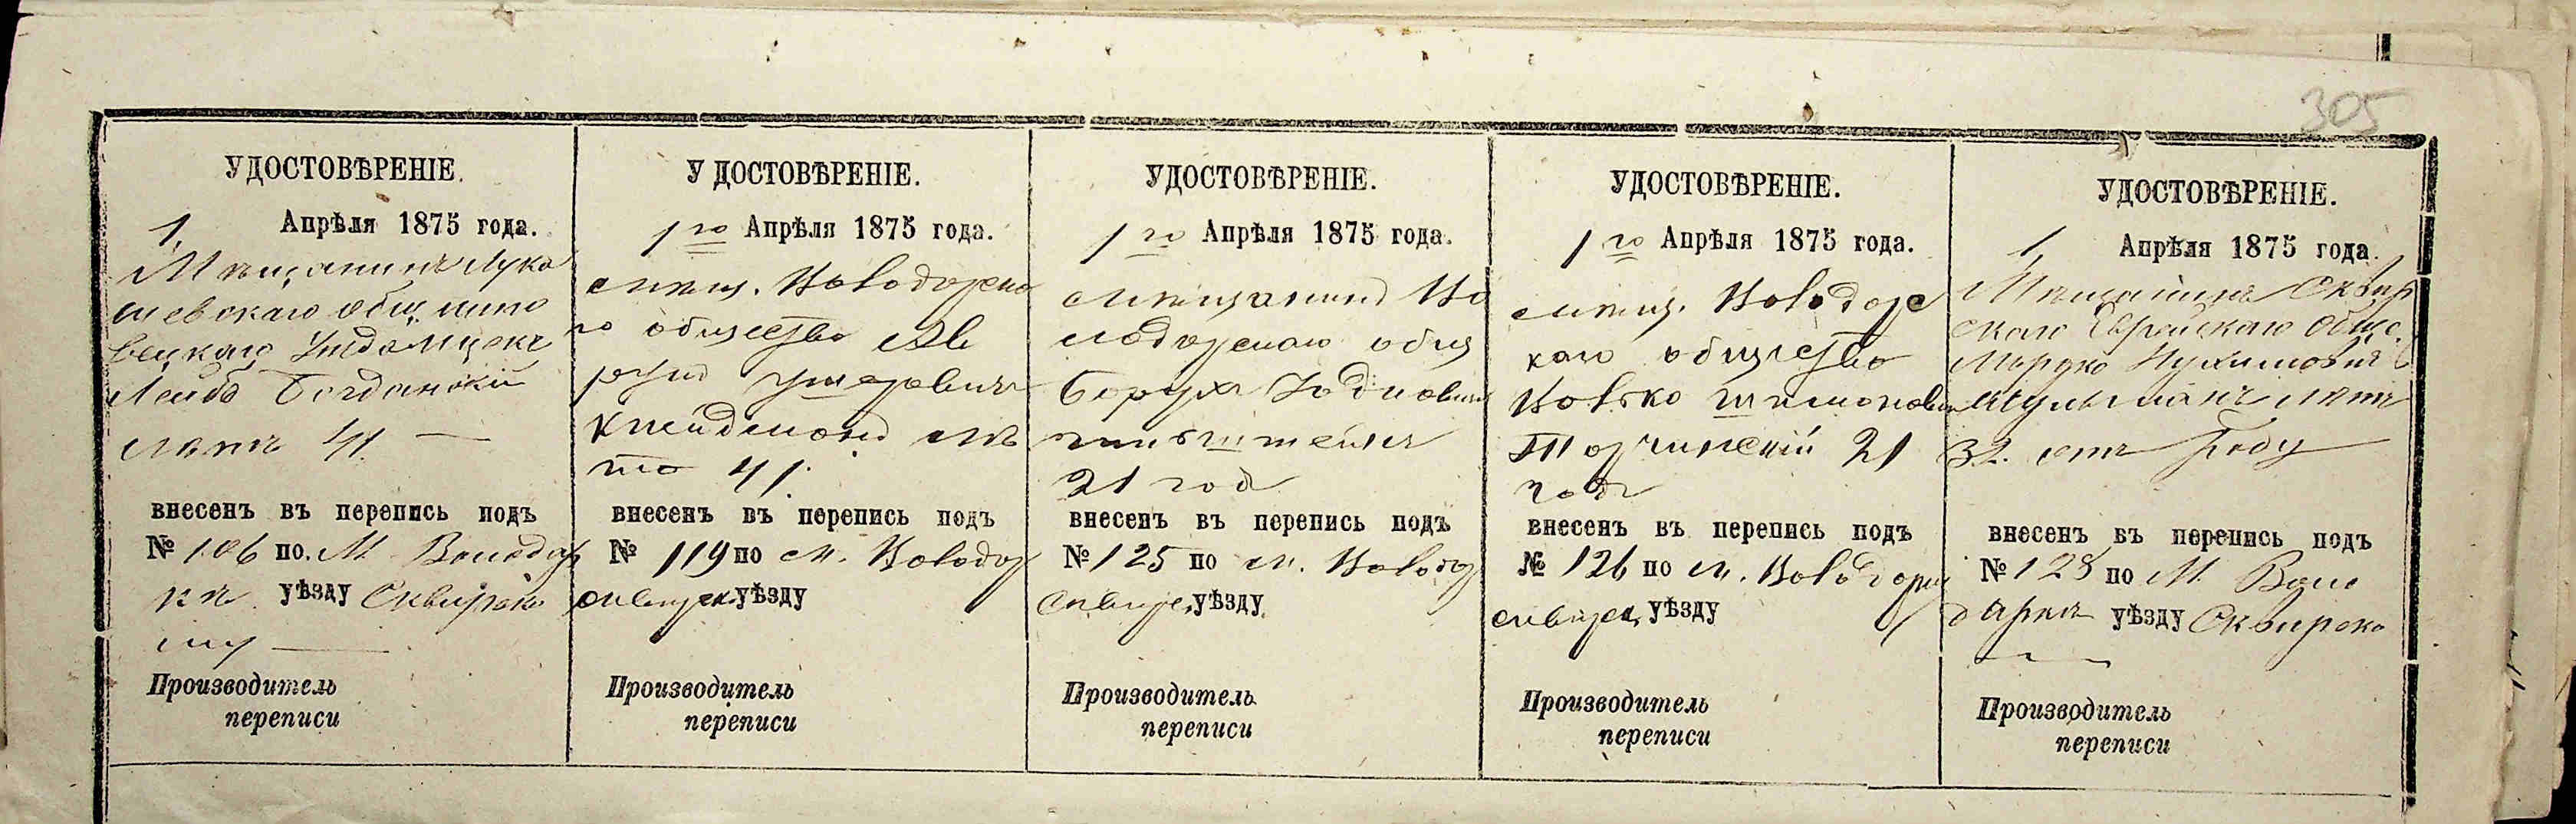 305
УДОСТОВѢРЕНІЕ.
1. Апрѣля 1875 года.
Мѣщанинъ Лука
шевскаго общ липо
вецкаго Уѣзда Ицекъ
Лейба Богданскій
лѣтъ 41 —
внесенъ въ перепись подъ
№ 106 по. М. Володар
кѣ уѣзду Сквирско
му —
Производитель
переписи
УДОСТОВѢРЕНІЕ.
1го Апрѣля 1875 года.
мѣщ. Володарска
го общества
Ушеровичъ
Клейдманъ лѣ
то 41.
внесенъ въ перепись подъ
№ 119 по м. Володар
сквирск. уѣзду
Производитель
переписи
УДОСТОВѢРЕНІЕ.
1го Апрѣля 1875 года.
мѣщанинъ Во
лодарскаго общ
Борухъ
21 год
внесенъ въ перепись подъ
№ 125 по м. Володар
Сквирс. уѣзду
Производитель
переписи
УДОСТОВѢРЕНІЕ.
1го Апрѣля 1875 года.
мѣщ. Володарс
каго общество
Волько Шимонови
Торчинскій 21
годъ
внесенъ въ перепись подъ
№ 126 по м. Володарки
сквирск. уѣзду
Производитель
переписи
УДОСТОВѢРЕНІЕ.
1. Апрѣля 1875 года.
Мѣщанинъ Сквир
скаго Еврейскаго Общес.
Мордко Нухимовичъ
Шульманъ лѣтъ
32. отъ Роду
внесенъ въ перепись подъ
№ 128 по М. Воло
даркѣ уѣзду Сквирско
Производитель
переписи